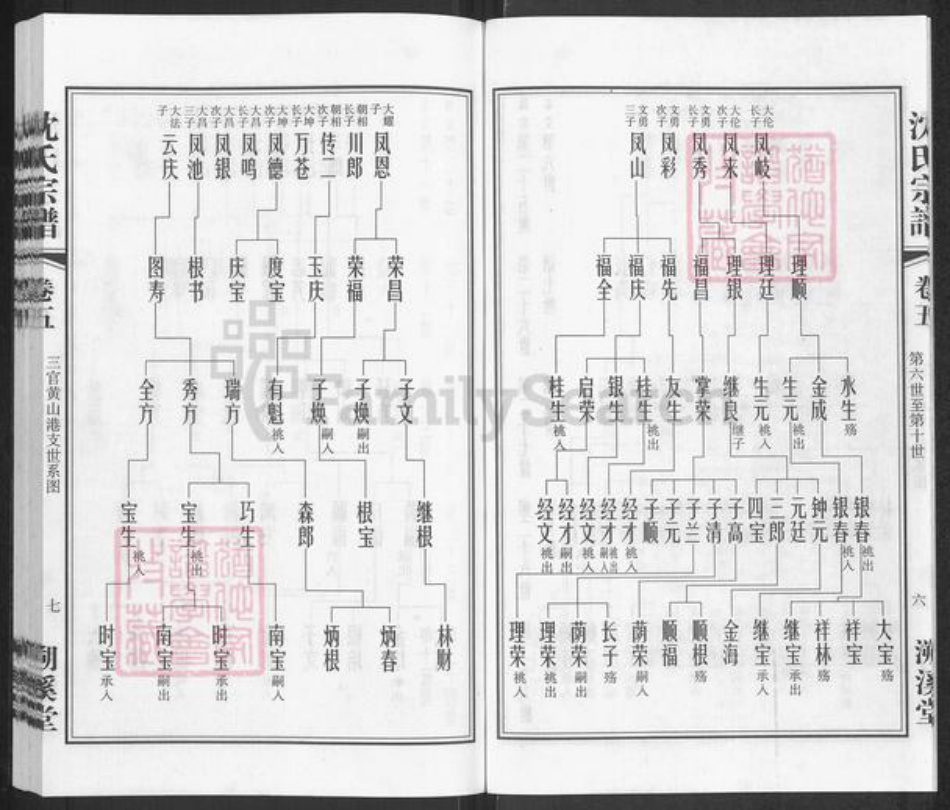 沈氏宗谱
卷五
第六世至第十世
六
溯溪堂
大伦长子 凤岐
大伦次子 凤来
文勇长子 凤秀
文勇次子 凤彩
文勇三子 凤山
理顺
理廷
理银
福昌
福先
福庆
福全
水生 殇
金成
生元 祧出
生元 祧入
继良 继子
掌荣
友生
桂生 祧出
银生
启荣
桂生 祧入
银春 祧出
银春 祧入
钟元
元廷
三郎
四宝
子高
子清
子兰
子元
子顺
经才 祧入
经才 祧出嗣入
经文 祧入
经才 嗣出
经文 祧出
大宝 殇
祥宝
祥林 殇
继宝 承出
继宝 承入
金海
顺根 殇
顺福
荫荣 嗣入
长子 殇
荫荣 嗣出
理荣 祧出
理荣 祧入
沈氏宗谱
卷五
三官黄山港支世系图
七
溯溪堂
大耀子 凤恩
朝相长子 川郎
朝相次子 传二
大坤长子 万苍
大坤次子 凤德
大昌长子 凤鸣
大昌次子 凤银
大昌三子 凤池
大法子 云庆
荣昌
荣福
玉庆
度宝
庆宝
根书
图寿
子文
子焕 嗣出
子焕 嗣入
有魁 祧入
瑞方
秀方
全方
继根
根宝
森郎
巧生
宝生 祧出
宝生 祧入
林财
炳春
炳根
南宝 嗣入
时宝 承出
南宝 嗣出
时宝 承入
FamilySearch